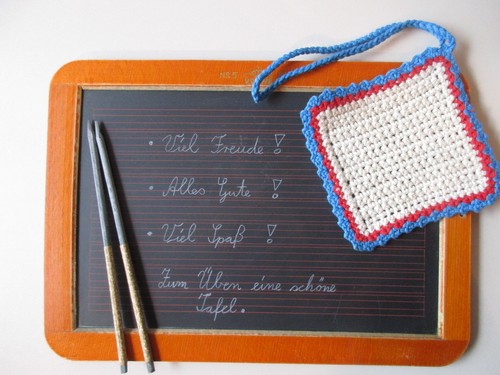 • Viel Freude!
• Alles Gute!
• Viel Spaß!
Zum Üben eine schöne
Tafel.